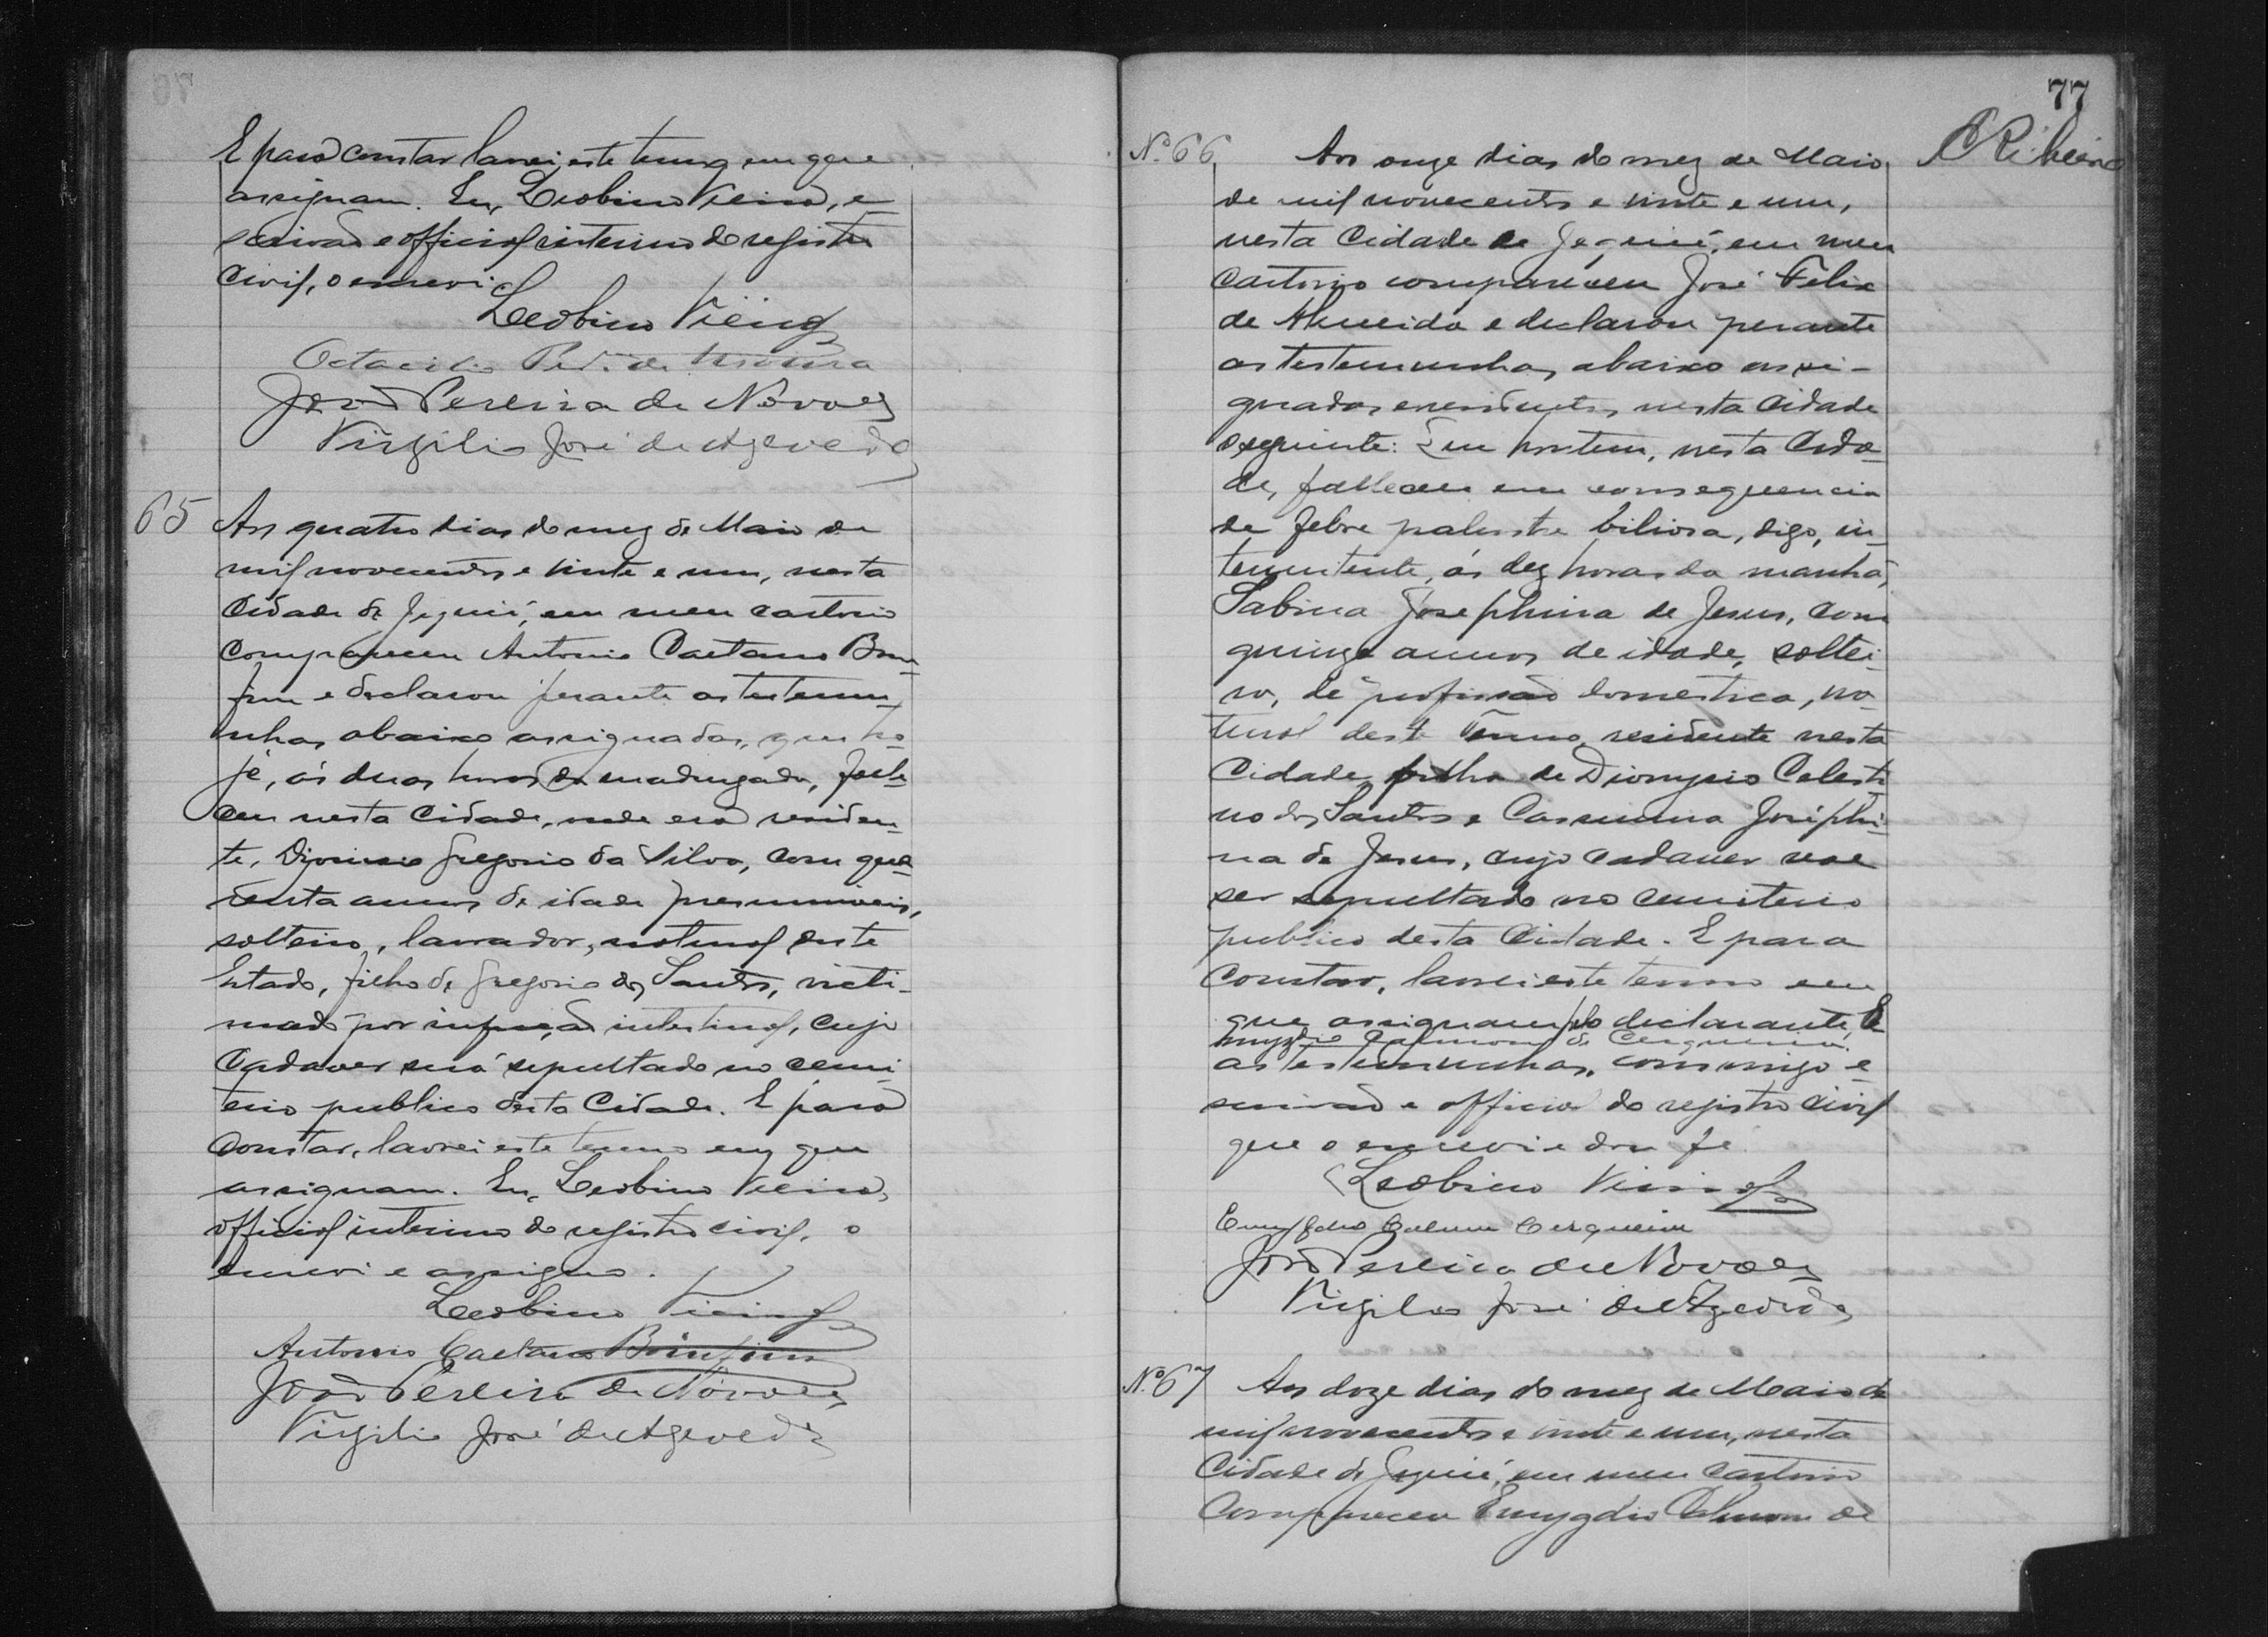 E para constar lavrei este termo em que
assignam. Eu, Leobino Vieira, e-
scrivão e official interino do registro
civil, o escrevi.
Leobino Vieira
Octacilio Per.ª de Moura
João Pereira de Novaes
Virgilio José de Azevedo
65 Aos quatro dias do mez de Maio de
mil novecentos e vinte e um, nesta
Cidade de Jequié, em meu cartorio
compareceu Antonio Caetano Bom-
fim e declarou perante as testemu-
nhas abaixo assignadas, que ho-
je, ás duas horas da madrugada, falle-
ceu nesta Cidade, onde era residen-
te, Dionisio Gregorio da Silva, com qua-
renta annos de idade presumiveis,
solteiro, lavrador, natural deste
Estado, filho de Gregorio dos Santos, victi-
mado por infecção intestinal, cujo
Cadaver será sepultado no cemi-
terio publico desta Cidade. E para
constar, lavrei este termo em que
assignam. Eu, Leobino Vieira,
official interino do registro civil, o
escrevi e assigno.
Leobino Vieira
Antonio Caetano Bomfim
João Pereira de Novaes
Virgilio José de Azevedo
77
Ribeiro
Nº 66 Aos onze dias do mez de Maio
de mil novecentos e vinte e um,
nesta Cidade de Jequié, em meu
Cartorio compareceu José Felix
de Almeida e declarou perante
as testemunhas abaixo assi-
gnadas e residentes nesta Cidade
o seguinte: Que hontem, nesta Cida-
de, falleceu em consequencia
de febre palustre biliosa, digo, in-
termitente, ás dez horas da manhã,
Sabina Josephina de Jesus, com
quinze annos de idade, soltei-
ra, de profissão domestica, na-
tural deste Termo, residente nesta
Cidade, filha de Dionysio Celesti-
no dos Santos e Cassimira Josephi-
na de Jesus, cujo cadaver vae
ser sepultado no cemiterio
publico desta Cidade. E para
Constar, lavrei este termo em
que assignam pelo declarante, E-
mygdio Calmon de Cerqueira,
as testemunhas, commigo e-
scrivão e official do registro civil
que o escrevi e dou fé.
Leobino Vieira
Emygdio Calmon Cerqueira
João Pereira de Novaes
Virgilio José de Azevedo
Nº 67 Aos doze dias do mez de Maio de
mil novecentos e vinte e um, nesta
Cidade de Jequié, em meu Cartorio
Compareceu Emygdio Calmon de